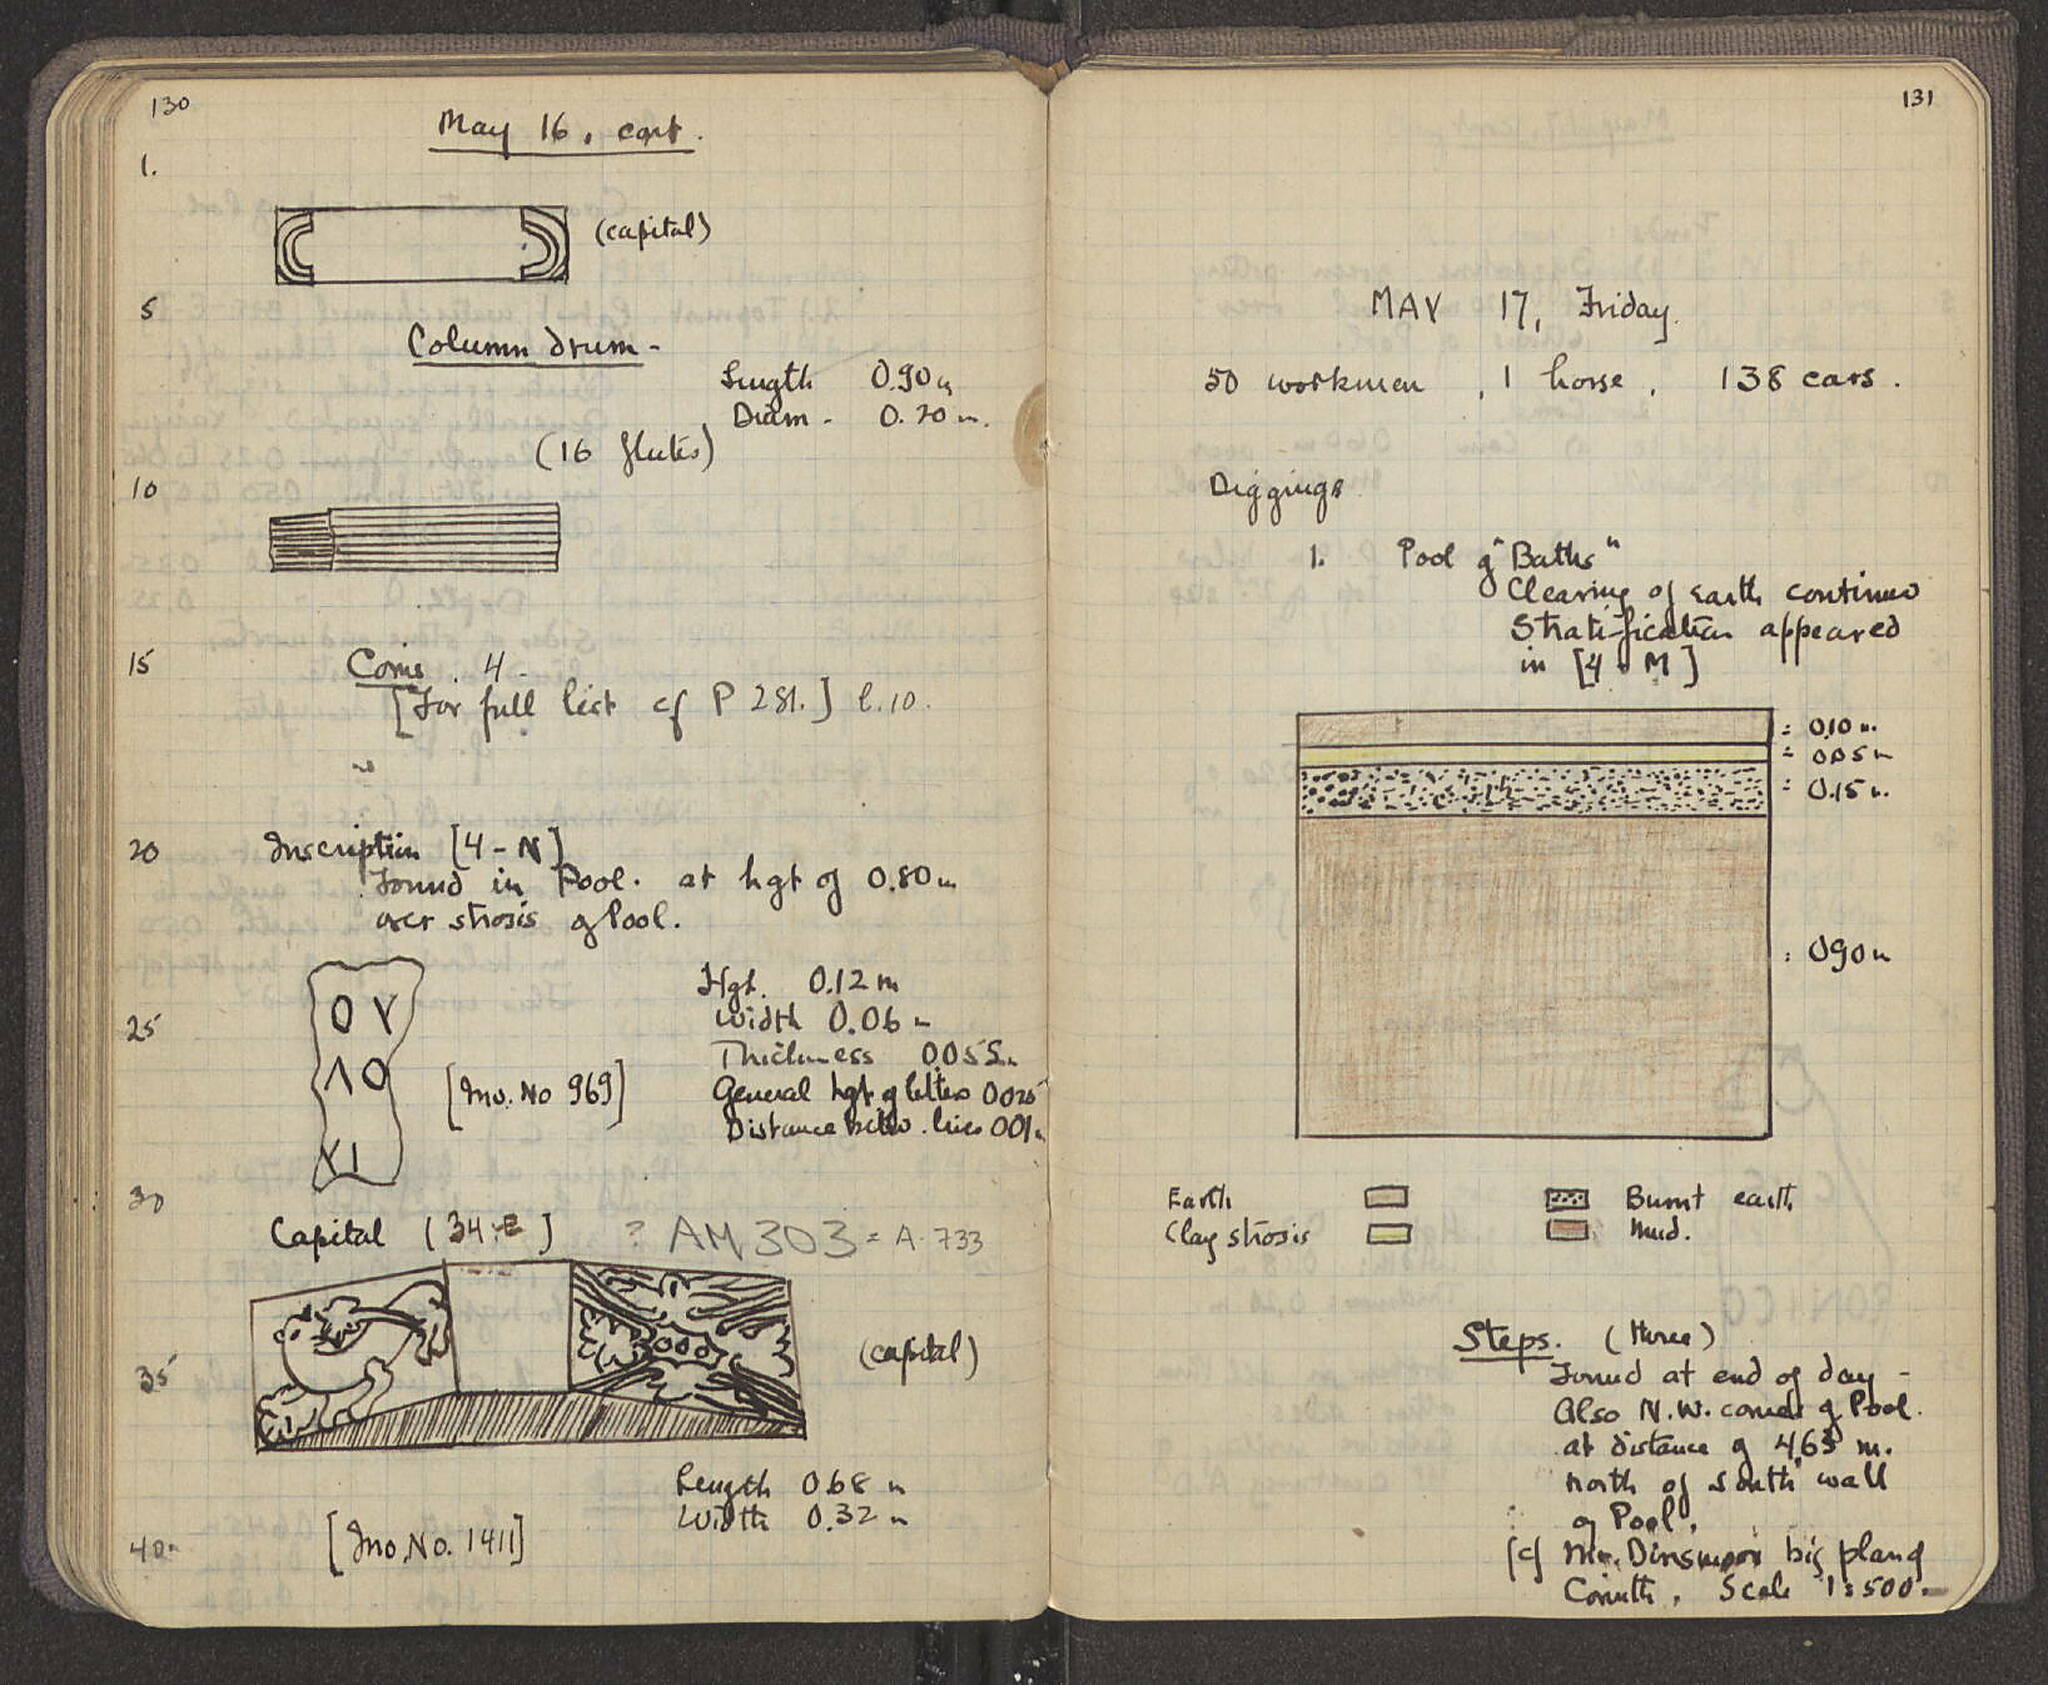 130
May 16, cont.
1.
(capital)
5
Column drum -
Length 0.90 m
Diam - 0.20 m.
(16 flutes)
10
15
Coins. 4 -
[For full list cf P 281.] l. 10.
20
Inscription [4-N]
Found in Pool. at hgt of 0.80 m
over strosis of Pool.
Hgt. 0.12 m
Width 0.06 m
25
Thickness 0.055 m
General hgt of letters 0.025
Distance betw. lines 0.01 m
Ο Υ
Λ Ο
Υ Ι
[Inv. No 969]
30
Capital [34-E] ? AM 303 = A-733
35
(capital)
Length 0.68 m
Width 0.32 m
40
[Inv. No. 1411]
131
MAY 17, Friday.
50 workmen, 1 horse, 138 cars.
Diggings
1. Pool of "Baths"
Clearing of earth continued
Stratification appeared
in [4-M]
= 0.10 m.
= 0.05 m
= 0.15 m.
= 0.90 m
Earth
Burnt earth
Clay strosis
Mud.
Steps. (three)
Found at end of day -
Also N.W. corner of Pool.
at distance of 4.63 m.
north of south wall
of Pool.
[cf Mr. Dinsmoor big plan of
Corinth, Scale 1:500.